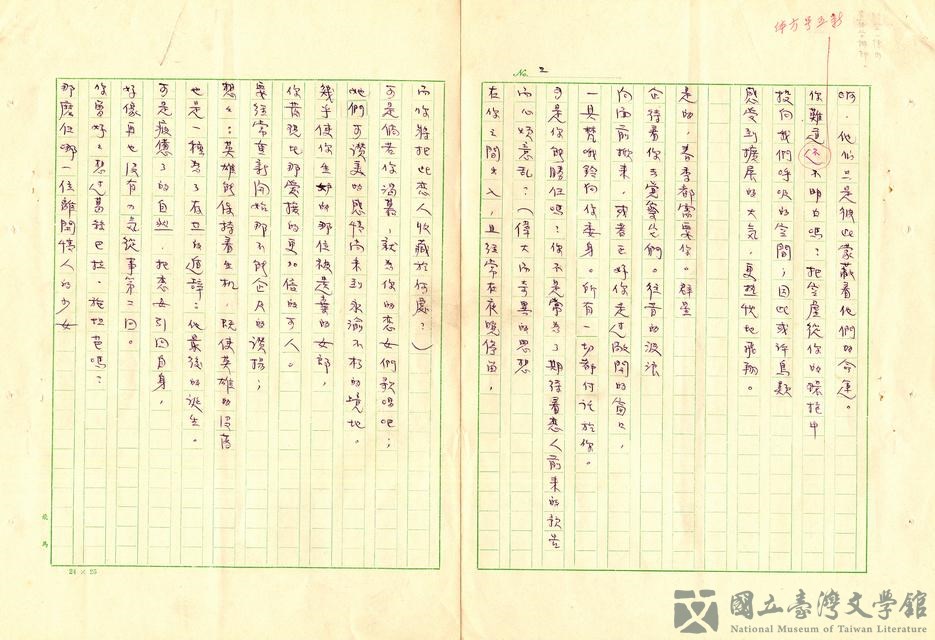 No. 2
啊，他们只是彼此蒙蔽着他們的命運。
你難道不不明白嗎？把空虛從你的環抱中
投向我們呼吸的空間；因此或許鳥類
感受到擴展的大氣，更熱忱地飛翔。
是的，春季都需要你。群星
企待着你去覺察它們。往昔的波浪
向面前掀来，或者正好你走过敞開的窗口，
一具梵哦鈴向你委身。所有一切都付託於你。
可是你能勝任嗎？你不是常為了期待着戀人前来的訊号
而心煩意乱？（偉大而奇異的思想
在你之間出入，且经常在夜晚停留，
而你將把此恋人收藏於何處？）
可是倘若你渴慕，就為你的恋女們歌唱吧；
她們可讚美的感情尚未到永渝不朽的境地。
幾乎使你生妒的那位被遺棄的女郎，
你發现比那愛撫的更加倍的可人。
要经常重新開始那不能企及的讚揚；
想想：英雄能保持着生机，既使英雄的没落
也是一種為了存在的遁辞：他最後的诞生。
可是疲憊了的自然，把恋女引回自身，
好像再也没有力氣從事第二回。
你曾好好想过葛絲巴拉．施坦芭嗎？
那麽任哪一位離開情人的少女
24 × 25
國立臺灣文學館
National Museum of Taiwan Literature